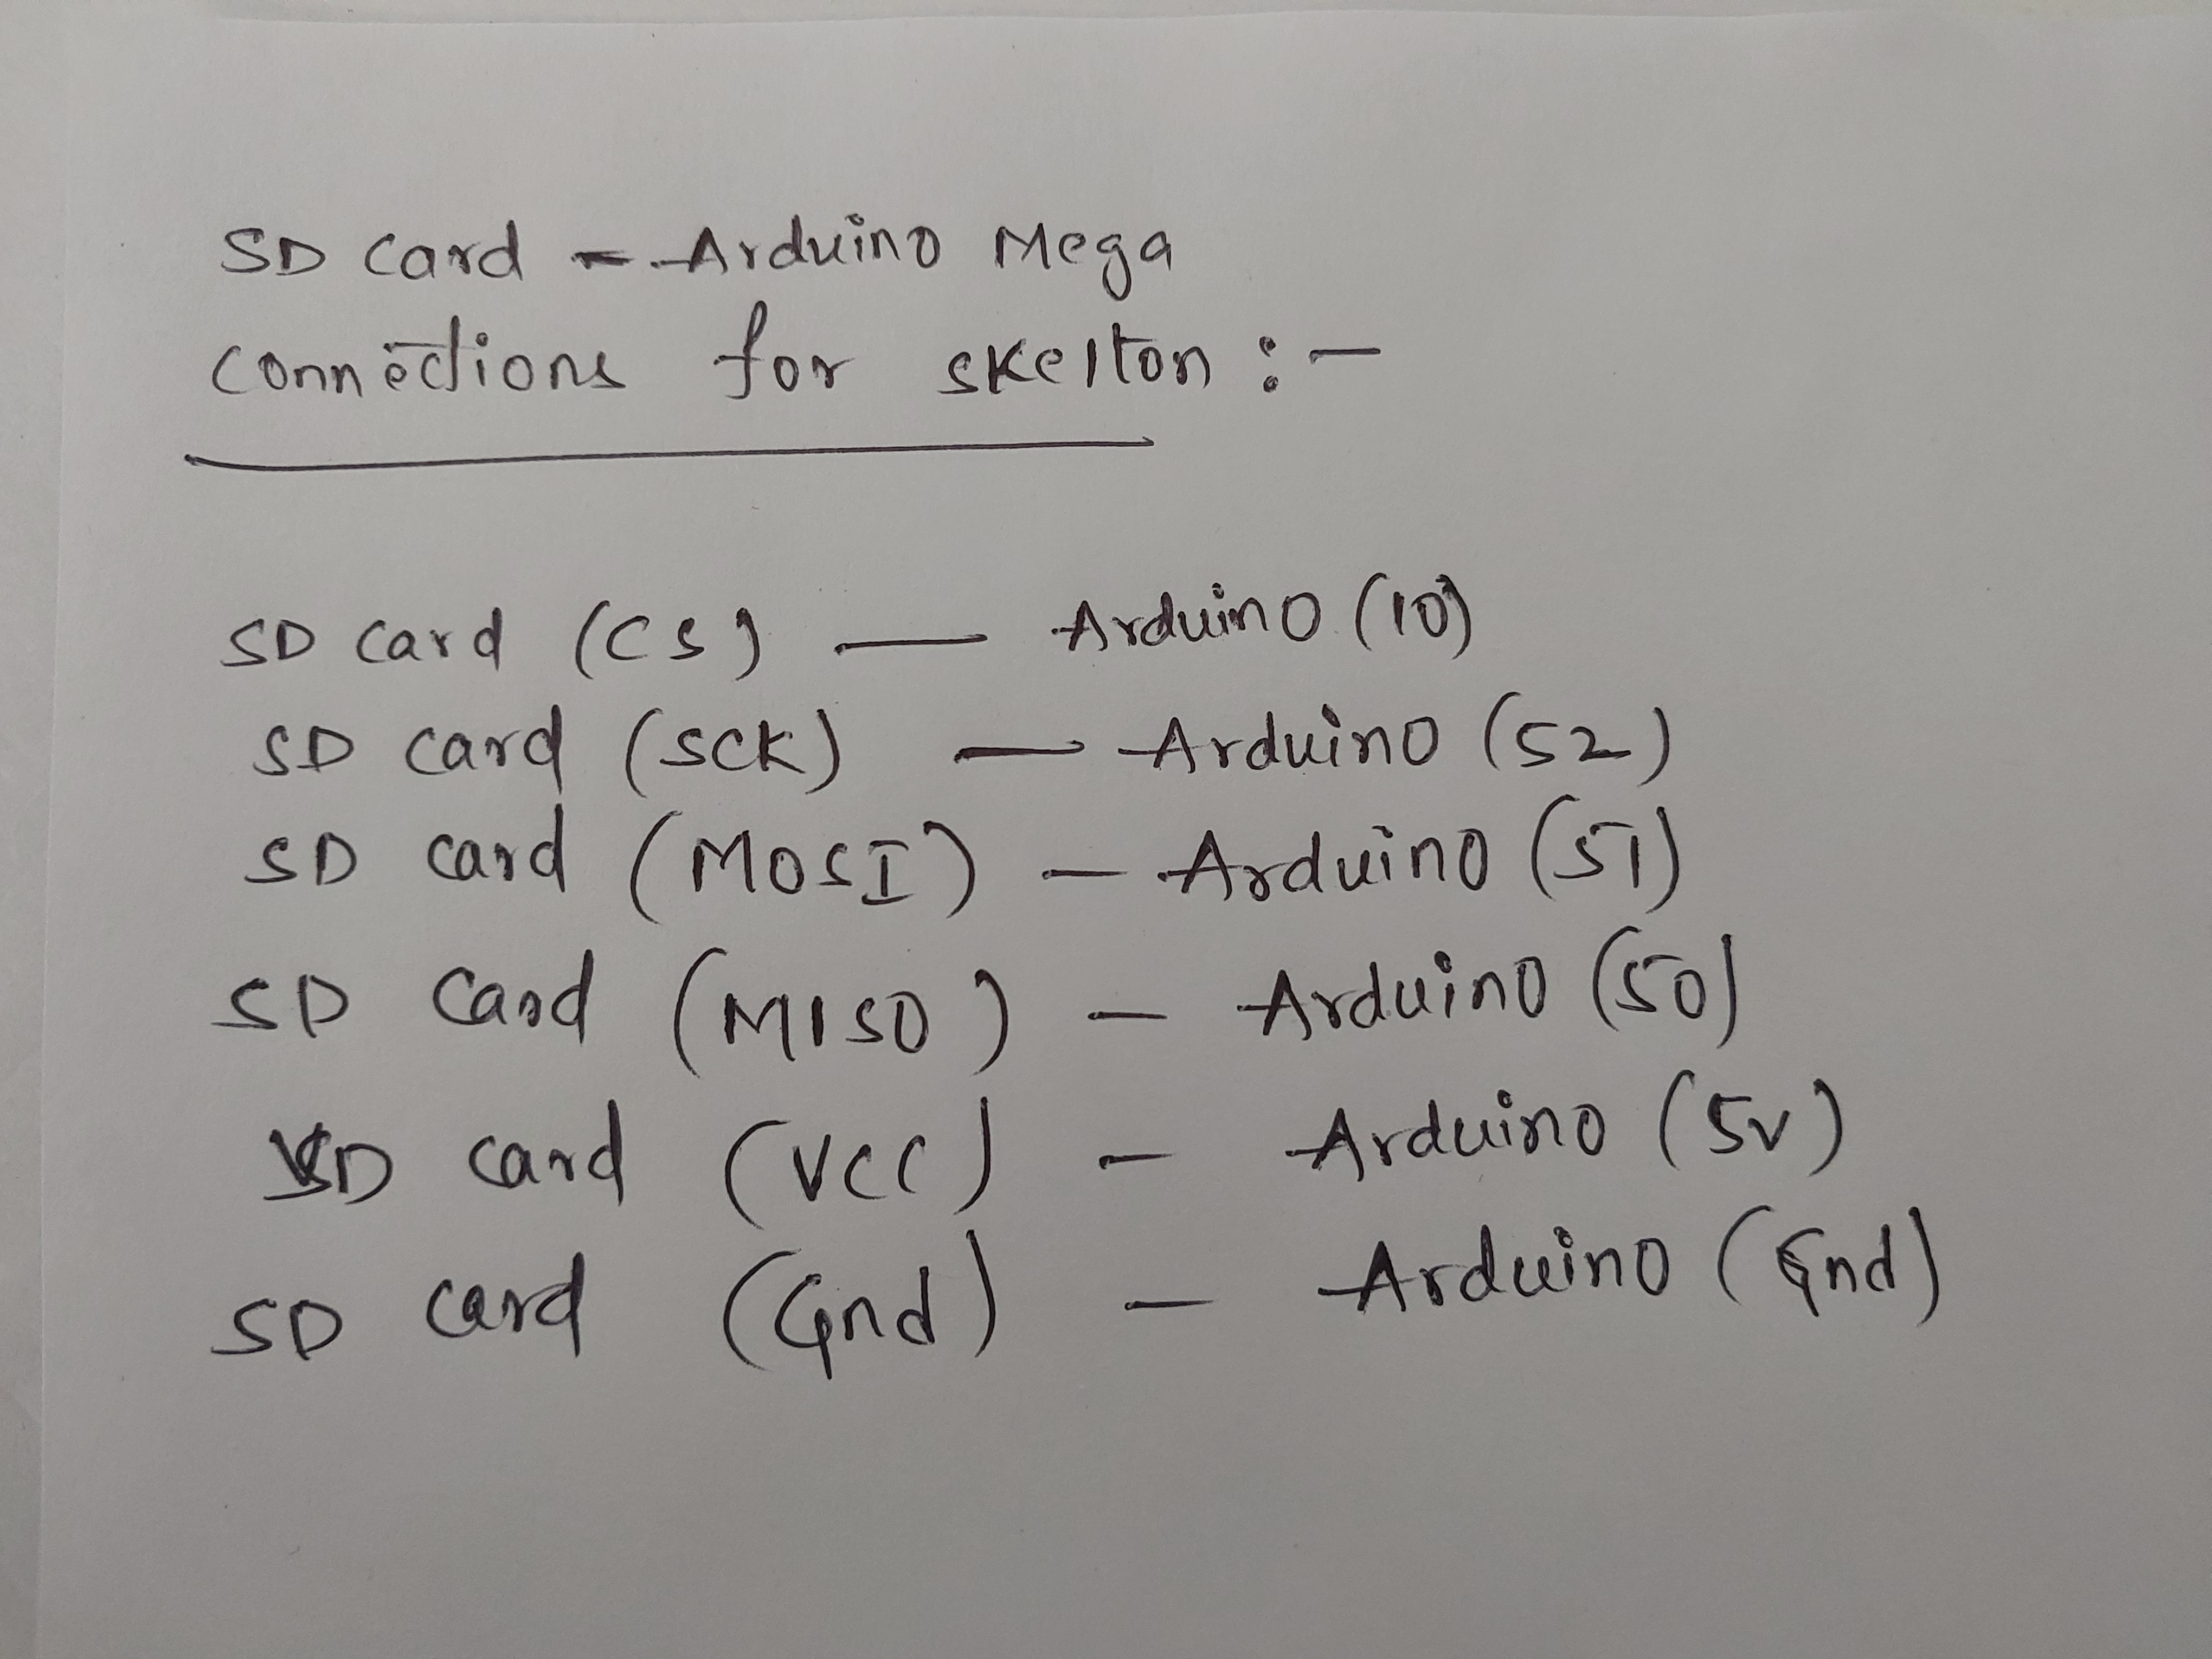 SD card - Arduino Mega
connections for skelton :-
SD card (CS) — Arduino (10)
SD card (SCK) — Arduino (52)
SD card (MOSI) — Arduino (51)
SD card (MISO) — Arduino (50)
SD card (VCC) — Arduino (5V)
SD card (Gnd) — Arduino (Gnd)